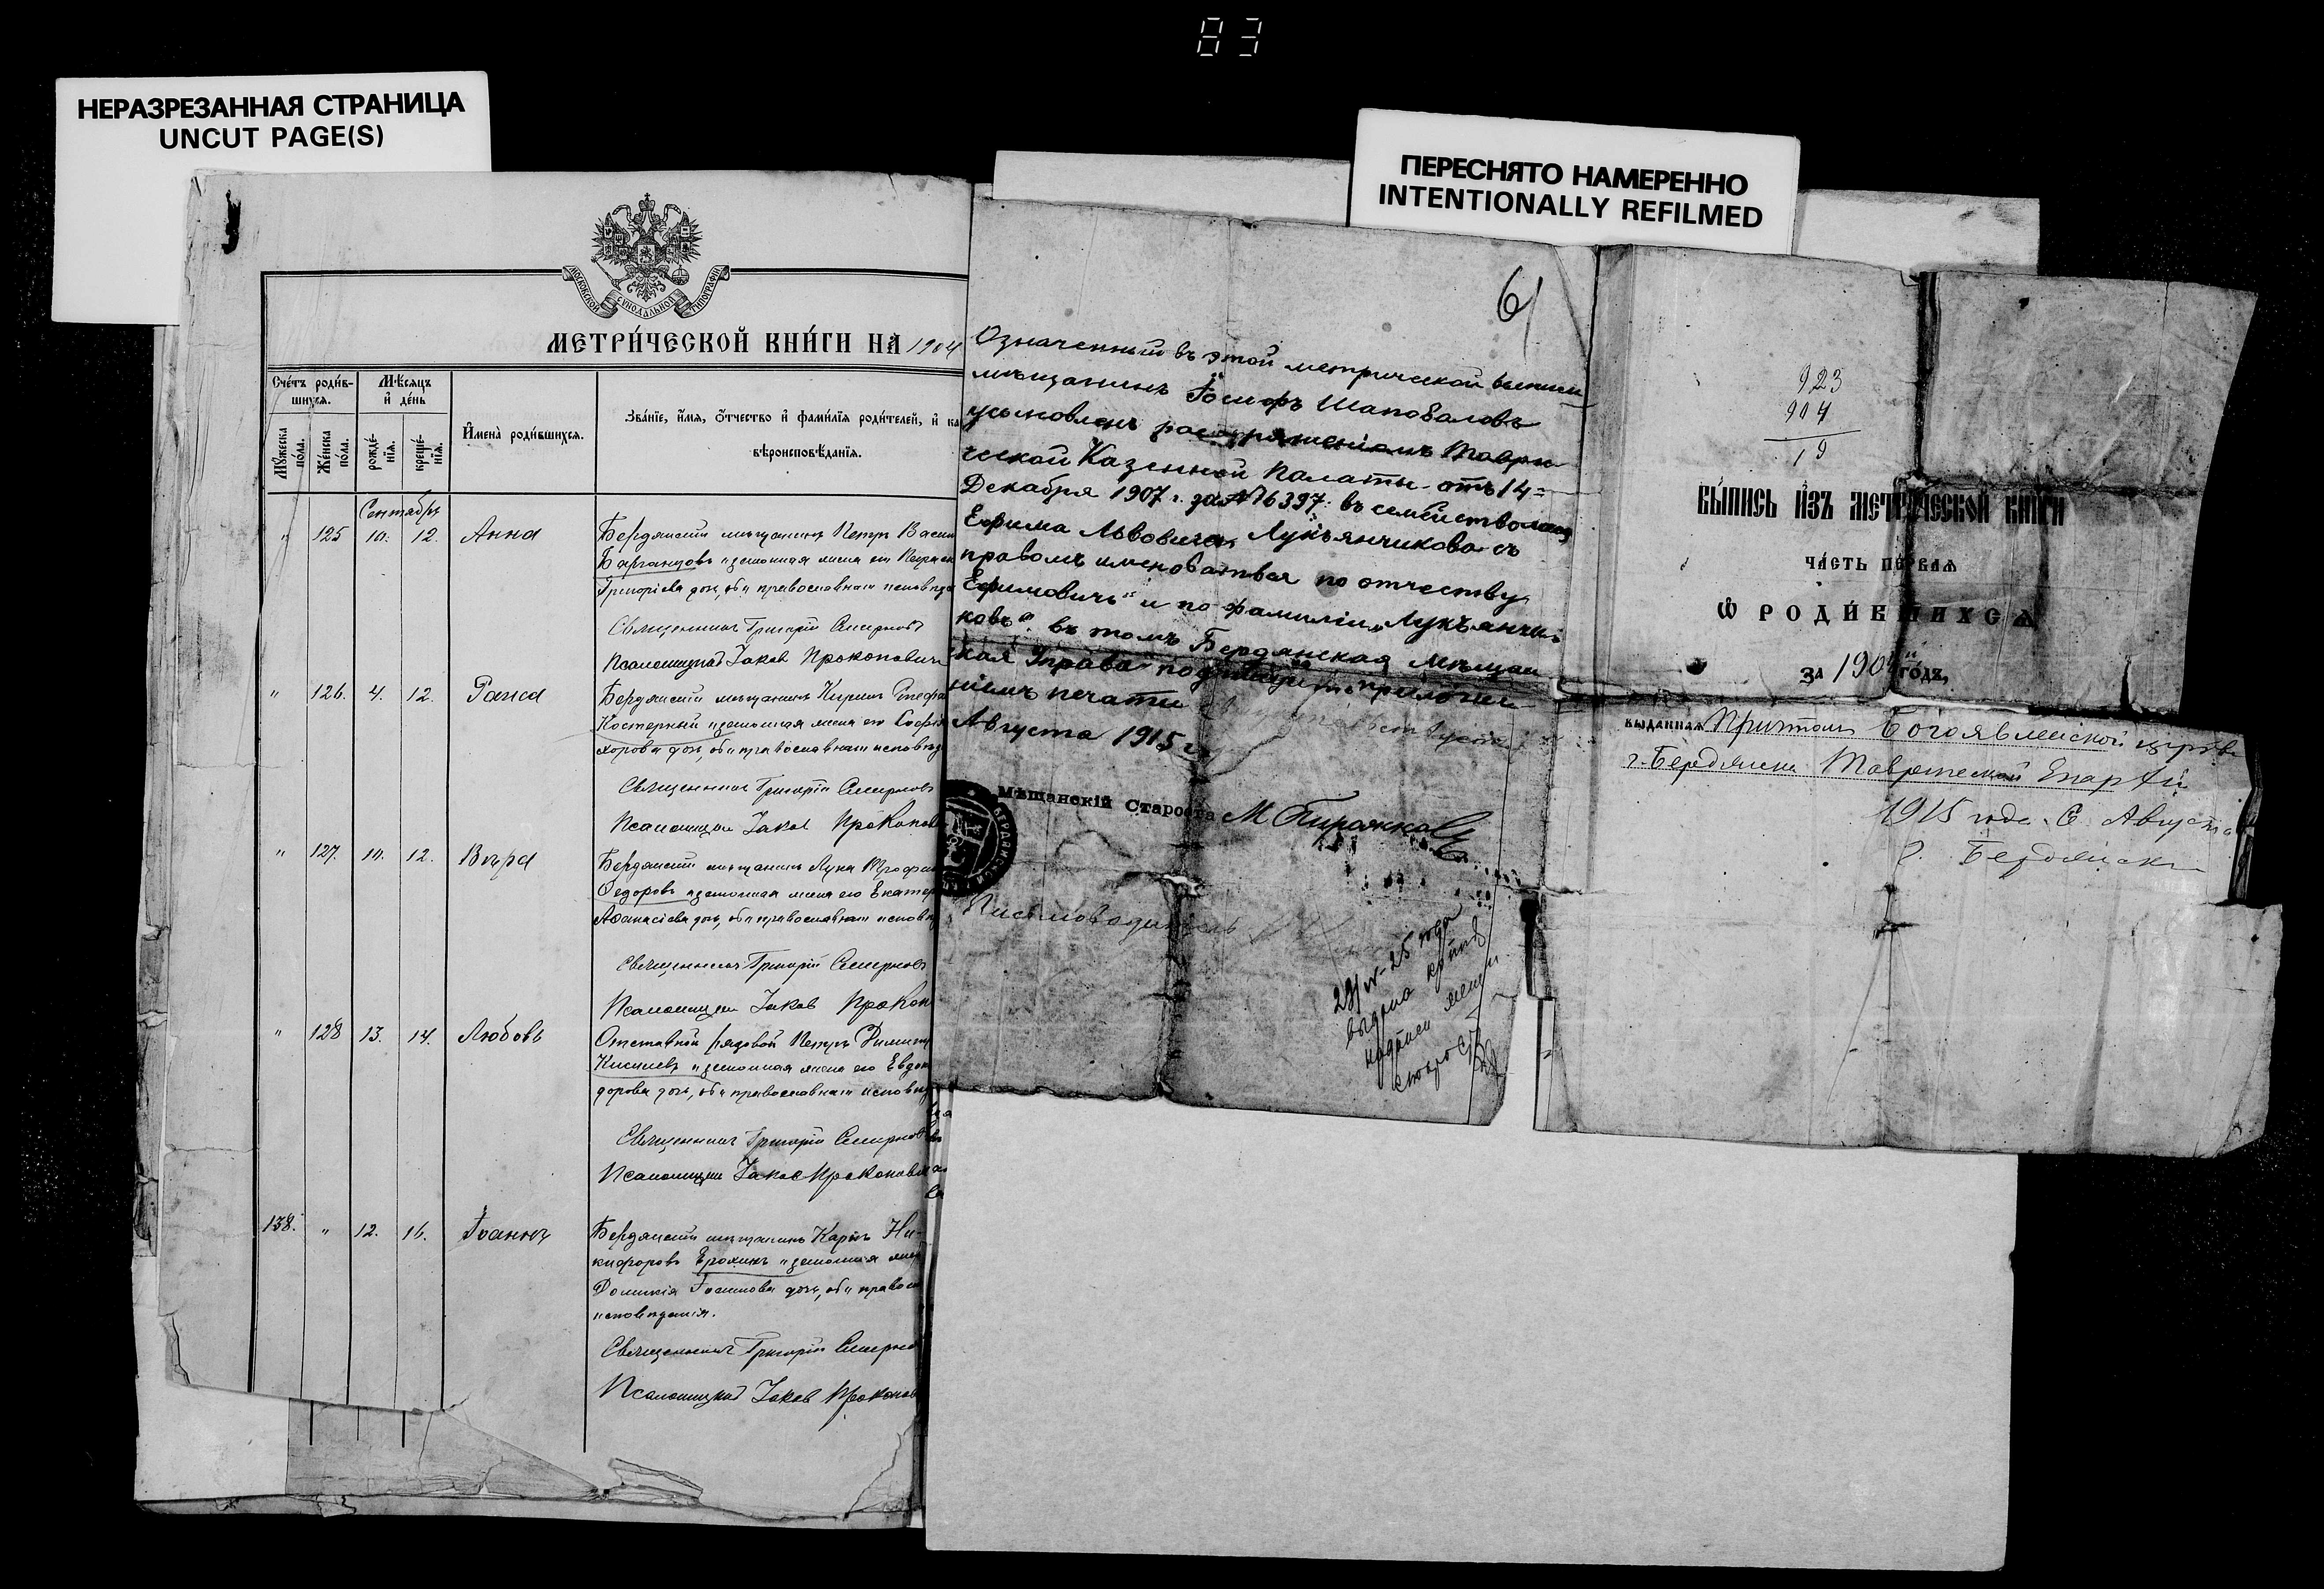 83
НЕРАЗРЕЗАННАЯ СТРАНИЦА
UNCUT PAGE(S)
ПЕРЕСНЯТО НАМЕРЕННО
INTENTIONALLY REFILMED
МОСКОВСКОЙ СУНОДАЛЬНОЙ ТИПОГРАФІИ
МЕТРИ́ЧЕСКОЙ КНИ́ГИ НА 1904
Сче́тъ роди́в-
шихся.
Мѣ́сяцъ
и҆ де́нь
Мꙋ́жеска по́ла.
Же́нска по́ла.
рожде́-
нїѧ.
креще́-
нїѧ.
И҆мена̀ роди́вшихсѧ.
Зва́нїе, и҆́мѧ, ѻ҆́тчество и҆ фами́лїѧ роди́телей, и҆ ка
вѣроисповѣ́данїѧ.
Сентябрь
" 125 10. 12. Анна
Бердянскій мѣщанинъ Петръ Васил
Барганцовъ и законная жена его
Григоріева дочь, оба православнаго исповѣда
Священникъ Григорій Смирновъ
Псаломщикъ Іаковъ Прокопович
" 126. 4. 12. Раиса
Бердянскій мѣщанинъ Кирилъ
Костерный и законная жена его Софія
хорова дочь, оба православнаго исповѣд
Священникъ Григорій Смирновъ
Псаломщикъ Іаковъ Прокопов
" 127. 10. 12. Вѣра
Бердянскій мѣщанинъ Лука Трофим
Федоровъ и законная жена его Екатер
Аѳанасіева дочь, оба православнаго исповѣд
Священникъ Григорій Смирновъ
Псаломщикъ Іаковъ Прокоп
" 128 13. 14. Любовь
Отставной рядовой Петръ Димит
Киселевъ и законная жена его Евдок
дорова дочь, оба православнаго исповѣд
Священникъ Григорій Смирновъ
Псаломщикъ Іаковъ Прокопович
138. " 12. 16. Іоаннъ
Бердянскій мѣщанинъ Карпъ Ни-
кифоровъ Ерохинъ и законная жена
Домникія Іосифова дочь, оба правосл
исповѣданія.
Священникъ Григорій Смирно
Псаломщикъ Іаковъ Прокопов
61
Означенный въ этой метрической выписи
мѣщанинъ Іосифъ Шаповаловъ
усыновленъ распоряженіемъ Таври-
ческой Казенной Палаты отъ 14=
Декабря 1907 г. за № 16397. въ семейство мѣщ
Ефима Львовича Лукьянчикова съ
правомъ именоваться по отчеству
Ефимовичъ" и по фамиліи „Лукъянчи-
ковъ". въ томъ Бердянская Мѣщан
ская Управа подписью и приложе
ніемъ печати
Августа 1915 г.
Мѣщанскій Староста
М Пирожков
Письмоводитель
29/IV-25 года
выдана копия
923
904
19
ВЫ́ПИСЬ И҆ЗЪ МЕТРИ́ЧЕСКОЙ КНИ́ГИ
ЧА́СТЬ ПЕ́РВАѦ
Ѡ҆ РОДИ́ВШИХСѦ
ЗА 1904й ГО́ДЪ,
выданная Притомъ Богоявленской церкви
г. Бердянска Таврической Епархіи
1915 года 6 Августа
г. Бердянскъ